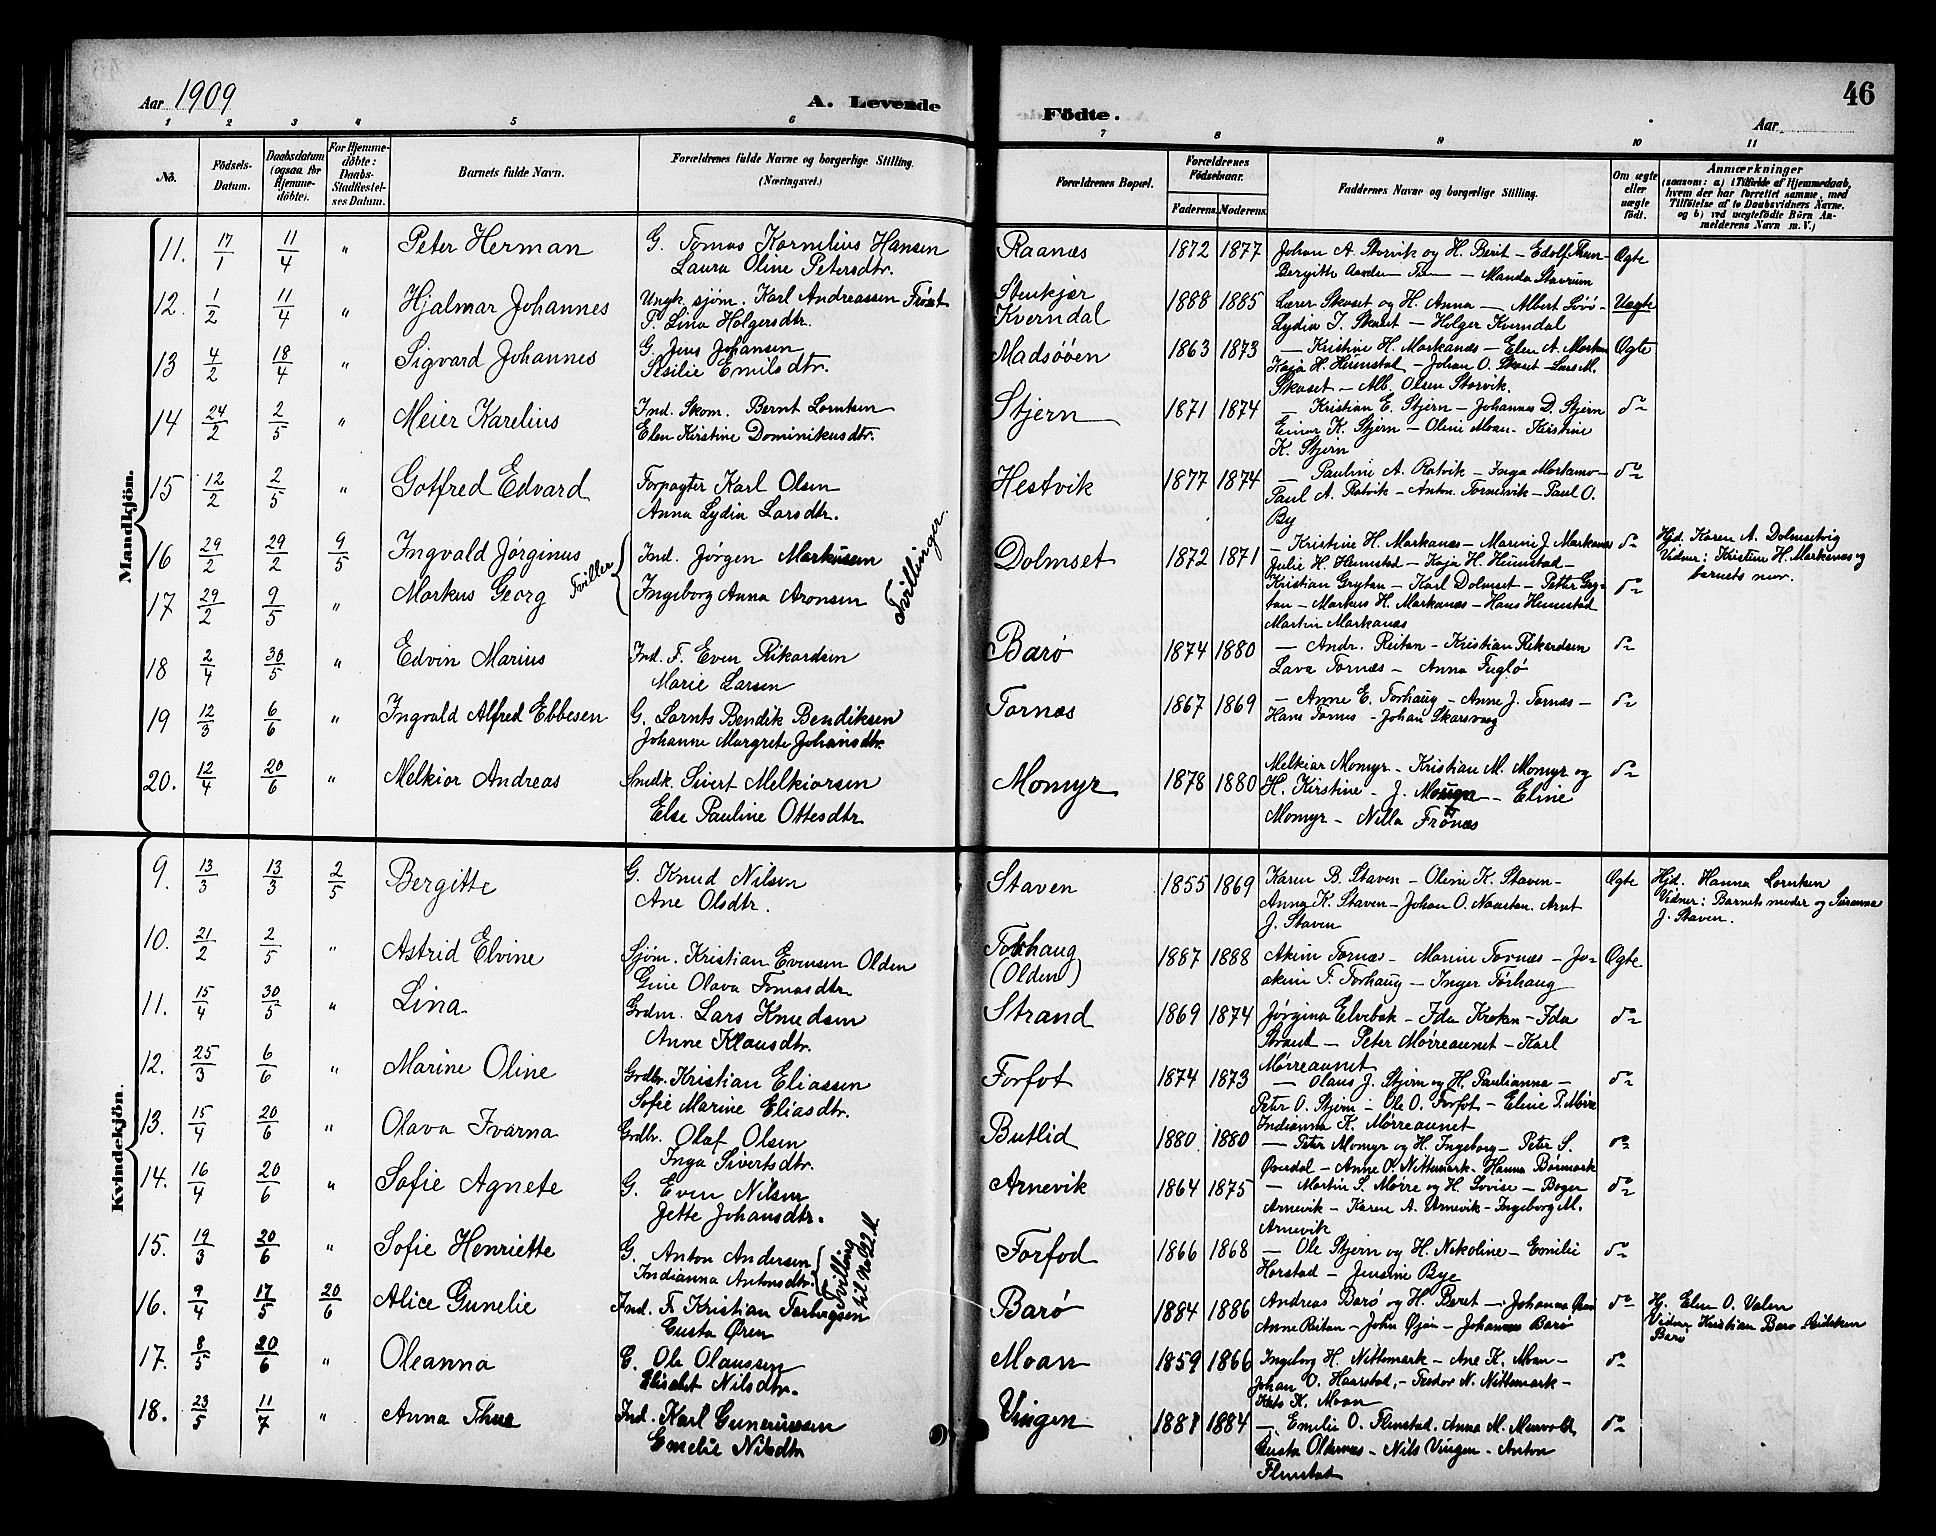 Aar 1909
A. Levende
Födte.
46
Aar
1 2 3 4 5 6 7 8 9 10 11
No.
Födsels-Datum.
Daabsdatum (ogsaa for Hjemme-döbte).
For Hjemme-döbte: Daabs-Stadfæstel-ses Datum.
Barnets fulde Navn.
Forældrenes fulde Navne og borgerlige Stilling. (Næringsvei.)
Forældrenes Bopæl.
Forældrenes Födselsaar.
Faderens. Moderens.
Faddernes Navne og borgerlige Stilling.
Om ægte eller uægte födt.
Anmærkninger
(saasom: a) i Tilfælde af Hjemmedaab, hvem der har forrettet samme, med Tilföielse af to Daabsvidners Navne, og b) ved uægtefödte Börn An-melderens Navn m. V.)
Mandkjön.
11. 17/1 11/4 " Peter Herman G. Tomas Kornelius Hansen Raanæs 1872 1877 Johan A. Storvik og H. Berit – Edolf Thun-
Laura Oline Petersdtr. Bergith – Manda Stavrum Ægte
12. 1/2 11/4 " Hjalmar Johannes Ungk. sjøm. Karl Andreassen Frøset Stenkjær 1888 1885 Lærer Skaset og H. Anna – Albert Uægte
P. Lina Holgersdtr. Kverndal Lydia J. Skaset – Holger Kverndal
13 4/2 18/4 " Sigvard Johannes G. Jens Johansen Madsøøen 1863 1873 – Kristine H. Markanæs – Elen A. Ægte
Sesilie Emilsdtr. Kaja H. Heimstad – Johan O. Skaset – Lars M.
Skaset – Alb. Olsen Storvik.
14 24/2 2/5 " Meier Karelius Ind. Skom. Bernt Lorntsen Stjern 1871 1874 – Kristian E. Stjern – Johannes D. Stjern do
Elen Kirstine Dominikusdtr. Einar K. Stjern – Oline Moan – Kristine
K. Stjern
15 12/2 2/5 " Gotfred Edvard Forpagter Karl Olsen Hestvik 1877 1874 – Pauline A. Ratvik – Inga do
Anna Lydia Larsdtr. Paul A. Ratvik – Anton – Paul O.
By
16 29/2 29/2 9/5 Ingvald Jørginus Ind. Jørgen Markussen Dolmset 1872 1871 – Kristine H. Markanæs – Marine J. Markanæs do Hjd. Karen A. Dolmsetvig
Tviller Tvillinger. Julie H. Heimstad – Kaja H. Heimstad – Vidner: Kristine H. Markanæs og
17 29/2 9/5 " Markus Georg Ingeborg Anna Aronsen Kristian Grytan – Karl Dolmset – Petter do barnets mor.
– Markus H. Markanæs – Hans Heimstad
Martin Markanæs
18 2/4 30/5 " Edvin Marius Ind. F. Even Rikardsen Barø 1874 1880 – Andr. Reitan – Kristian Rikardsen do
Marie Larsen Lava Tornæs – Anna Fuglø
19 12/3 6/6 " Ingvald Alfred Ebbesen G. Lornts Bendik Bendiksen Tornæs 1867 1869 – Anne E. Torhaug – Anne J. Tornæs – do
Johanne Margrete Johansdtr. Hans Tornæs – Johan Skarsvaag
20. 12/4 20/6 " Melkior Andreas Smdk. Sivert Melkiorsen Momyr 1878 1880 Melkior Momyr – Kristian M. Momyr og do
Else Pauline Ottesdtr. H. Kirstine – J. Momyr – Eline
Momyr – Nilla Frønæs
Kvindekjön.
9. 13/3 13/3 2/5 Bergitte G. Knud Nilsen Staven 1855 1869 Karen B. Staven – Oline K. Staven – Ægte Hjd. Hanna Lorntsen
Ane Olsdtr. Anna K. Staven – Johan O. Naustan. Arnt Vidner: Barnets moder og
J. Staven J. Staven.
10. 21/2 2/5 " Astrid Elvine Sjøm. Kristian Evensen Olden Torhaug 1887 1888 Akim Tornæs – Marine Tornæs – Jo- Ægte
Gine Olava Tomasdtr. (Olden) akim F. Torhaug – Inger Torhaug
11. 15/4 30/5 " Lina Grdm. Lars Knudsen Strand 1869 1874 Jørgina Elvebak – Ida Kroken – Ida do
Anne Klausdtr. Strand – Peter Mørreaunet – Karl
Mørreaunet
12. 25/3 6/6 " Marine Oline Grdbr. Kristian Eliassen Forfot 1874 1873 – Olaus J. Stjern og H. Paulianna – do
Sofie Marine Eliasdtr. Peter O. Stjern – Ole O. Forfot – Eline P. Mørre
Indianna K. Mørreaunet
13. 15/4 20/6 " Olava Ivarna Grdbr. Olaf Olsen Butlid 1880 1880 – Peter Momyr og H. Ingeborg – Peter S. do
Inga Sivertsdtr. Øverdal – Anne O. Nittemark – Hanna Børmark
14. 16/4 20/6 " Sofie Agnete G. Even Nilsen Arnevik 1864 1875 – Martin S. Mørre og H. Lovise – Boger do
Jette Johansdtr. Arnevik – Karen A. Arnevik – Ingeborg M.
Arnevik
15. 19/3 20/6 " Sofie Henriette G. Anton Andersen Forfod 1866 1868 – Ole Stjern og H. Nikoline – Emilie do
Indianna Antonsdtr. Tvilling til No 92. M. Harstad – Jensine Bye
16. 9/4 17/5 20/6 Alice Gunelie Ind. F. Kristian Torbergsen Barø 1884 1886 Andreas Barø og H. Beret – Johanna Øren do Hj. Elen O. Valen
Gusta Øren Anne Reitan – John Øjen – Johannes Barø Vidner Kristian Barø
Barø
17. 8/5 20/6 " Oleanna G. Ole Olaussen Moan 1859 1866 Ingeborg H. Nittemark – Ane K. Moan – do
Elisabet Nilsdtr. Johan O. Haarstad, – Fredor N. Nittemark –
K. Moan
18. 23/5 11/7 " Anna Thue Ind. Karl Guneriussen Vingen 1881 1884 – Emilie O. Flenstad, Anna M. do
Emelie Nilsdtr Gusta Oldernæs – Nils Vingen – Anton
Flenstad